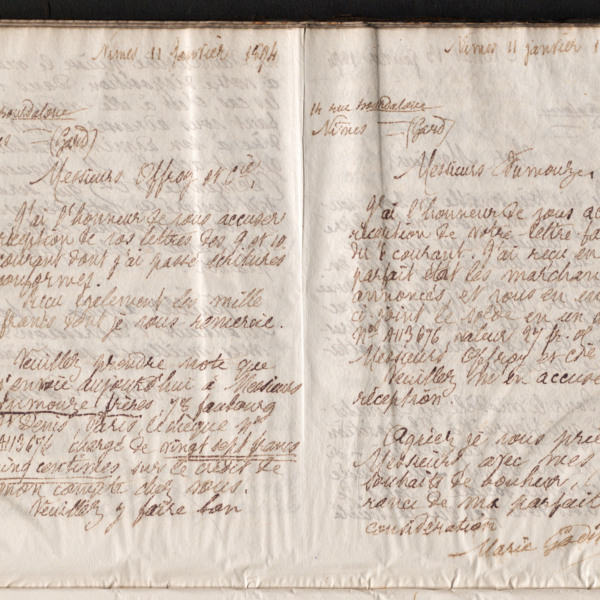 Nimes 11 janvier 1874
Bourdaloue
(Gard)
Messieurs Offroy et Cie,
J'ai l'honneur de vous accuser
réception de vos lettres des 9 et 10
courant dont j'ai passé écritures
conformes.
Reçu également les mille
francs dont je vous remercie.
Veuillez prendre note que
j'envoie aujourd'hui à Messieurs
Dumouze frères, 78 faubourg
St Denis, Paris, le chèque No
A113676 chargé de vingt sept francs
cinq centimes sur le crédit de
mon compte chez vous.
Veuillez y faire bon
Nimes 11 janvier 1
14 rue Bourdaloue
Nîmes (Gard)
Messieurs Dumouze
J'ai l'honneur de vous ac
réception de votre lettre
du courant. J'ai reçu en
parfait état les marchan
annoncés, et vous en
ci joint le solde en un
No A113676 valeur 27 fr. 05
Messieurs Offroy et Cie
Veuillez m'en accuse
réception.
Agréer je vous prie
Messieurs avec mes
souhaits de bonheur,
rance de ma parfait
considération
Marie